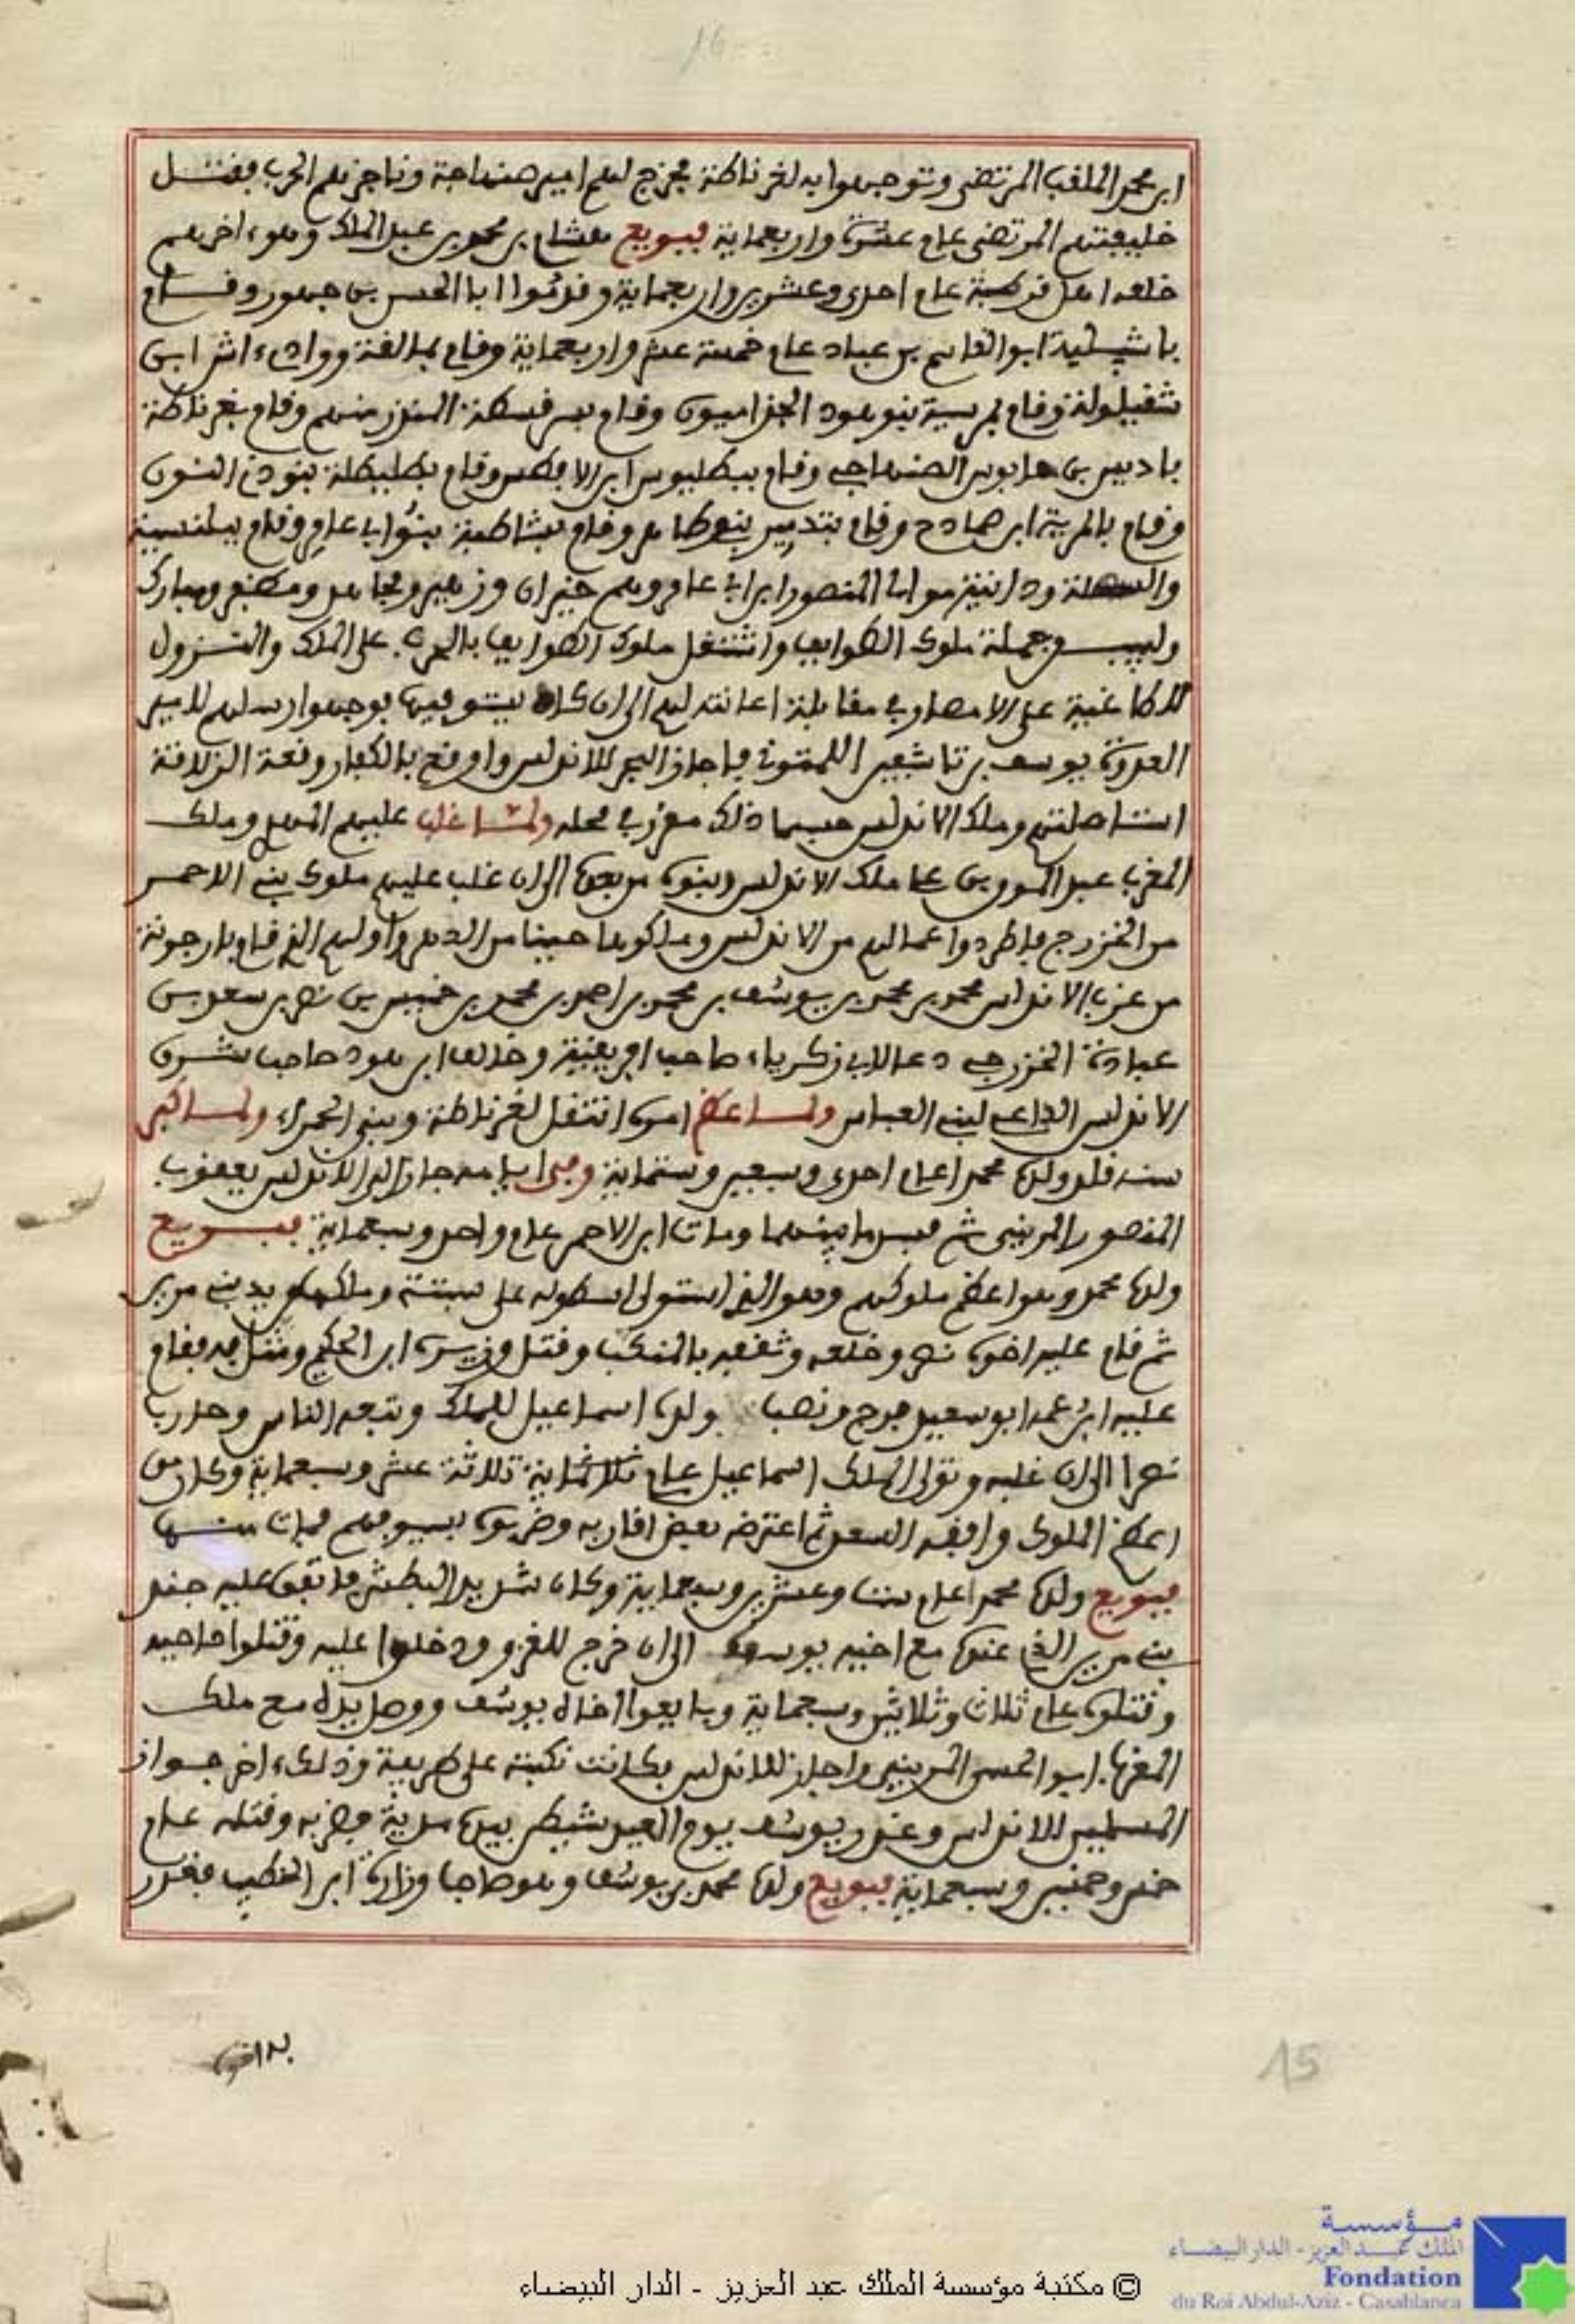 16
ابن محمد الملقب المرتضى وتوجهوا به لغرناطة فخرج لهم امير صنهاجة وناجزهم الحرب فقتل
خليفتهم المرتضى عام عشرة واربعماية فبويع هشام بن محمد بن عبد الملك وهو ءاخرهم
خلعه اهل قرطبة عام احدى وعشرين واربعماية وقدموا ابا الحسن بن جهور وقام
باشبيلية ابو القاسم بن عباد عام خمسة عشر واربعماية وقام بمالقة ووادء اش ابن
شقيلولة وقام بمرسية بنو هود الجذاميون وقام بسرقسطة المنذر منهم وقام بغرناطة
باديس بن حابوس الصنهاجي وقام ببطليوس ابن الافطس وقام بطليطلة بنو ذي النون
وقام بالمرية ابن صمادح وقام بتدمير بنو طاهر وقام بشاطبة بنو ابي عامر وقام ببلنسية
والسهلة ودانية موالي المنصور ابن ابي عامر وهم خيران وزهير ومجاهد ومظفر ومبارك
ولبيب وجملة ملوك الطوايف واشتغل ملوك الطوايف بالحرب على الملك والنزول
للطاغية على الامصار في مقابلة اعانته لهم الى ان كاد يستوفيها فوجهوا رسلهم للامير
العدوة يوسف بن تاشفين اللمتوني فاجاز البحر للاندلس واوقع بالكفار وقعة الزلاقة
استاصلتهم وملك الاندلس حسبما ذلك مقرر في محله ولما غلب عليهم المهدي وملك
المغرب عبد المومن بن علي ملك الاندلس وبنوه من بعده الى ان غلب عليهم ملوك بني الاحمر
من الخزرج فاطردوا عمالهم من الاندلس وملكوها حينا من الدهر واولهم الذي قام بارجونة
من غرب الاندلس محمد بن محمد بن يوسف بن محمد بن احمد بن محمد بن خميس بن نصر بن سعد بن
عبادة الخزرجي دعا لابي زكرياء صاحب افريقية وخالف ابن هود صاحب شرق
الاندلس الداعي لبني العباس ولما عظم امره انتقل لغرناطة وبنى الحمراء ولما كبر
سنه قلد ولده محمدا عام احدى وسبعين وستماية وفي ايامه جاز البحر للاندلس يعقوب
المنصور المريني ثم فسد ما بينهما ومات ابن الاحمر عام واحد وسبعماية فبويع
ولده محمد وهو اعظم ملوكهم وهو الذي استولى اسطوله على سبتة وملكها من يد بني مرين
ثم قام عليه اخوه نصر وخلعه وثقفه بالمنكب وقتل وزيره ابن الحكيم ومثل به فقام
عليه ابن عمه ابو سعيد فرج ونصب ولده اسماعيل للملك وتبعه الناس وحارب
نصرا الى ان غلبه وتولى الملك اسماعيل عام ثلاثماية ثلاثة عشر وسبعماية وكان من
اعظم الملوك ورافقه السعد ثم اعترضه بعض اقاربه وضربوه بسيوفهم فمات منها
فبويع ولده محمد اعام ست وعشرين وسبعماية وكان شديد البطش فاتفق عليه جند
بني مرين الذي عنده مع اخيه يوسف الى ان خرج للغزو ودخلوا عليه وقتلوا حاجبه
وقتلوه عام ثلاث وثلاثين وسبعماية وبايعوا اخاه يوسف ووصل يده مع ملك
المغرب ابو الحسن المريني واجاز للاندلس فكانت نكبته على طريفة وذلك ءاخر جواز
المسلمين للاندلس وغدر يوسف يوم العيد شيطن بيده مدية فضربه وقتله عام
خمس وخمسين وسبعماية فبويع ولده محمد بن يوسف وهو صاحب وزارة ابن الخطيب فغدر
به اخوه
15
مؤسسة
الملك عبد العزيز - الدار البيضاء
Fondation
du Roi Abdul-Aziz - Casablanca
© مكتبة مؤسسة الملك عبد العزيز - الدار البيضاء